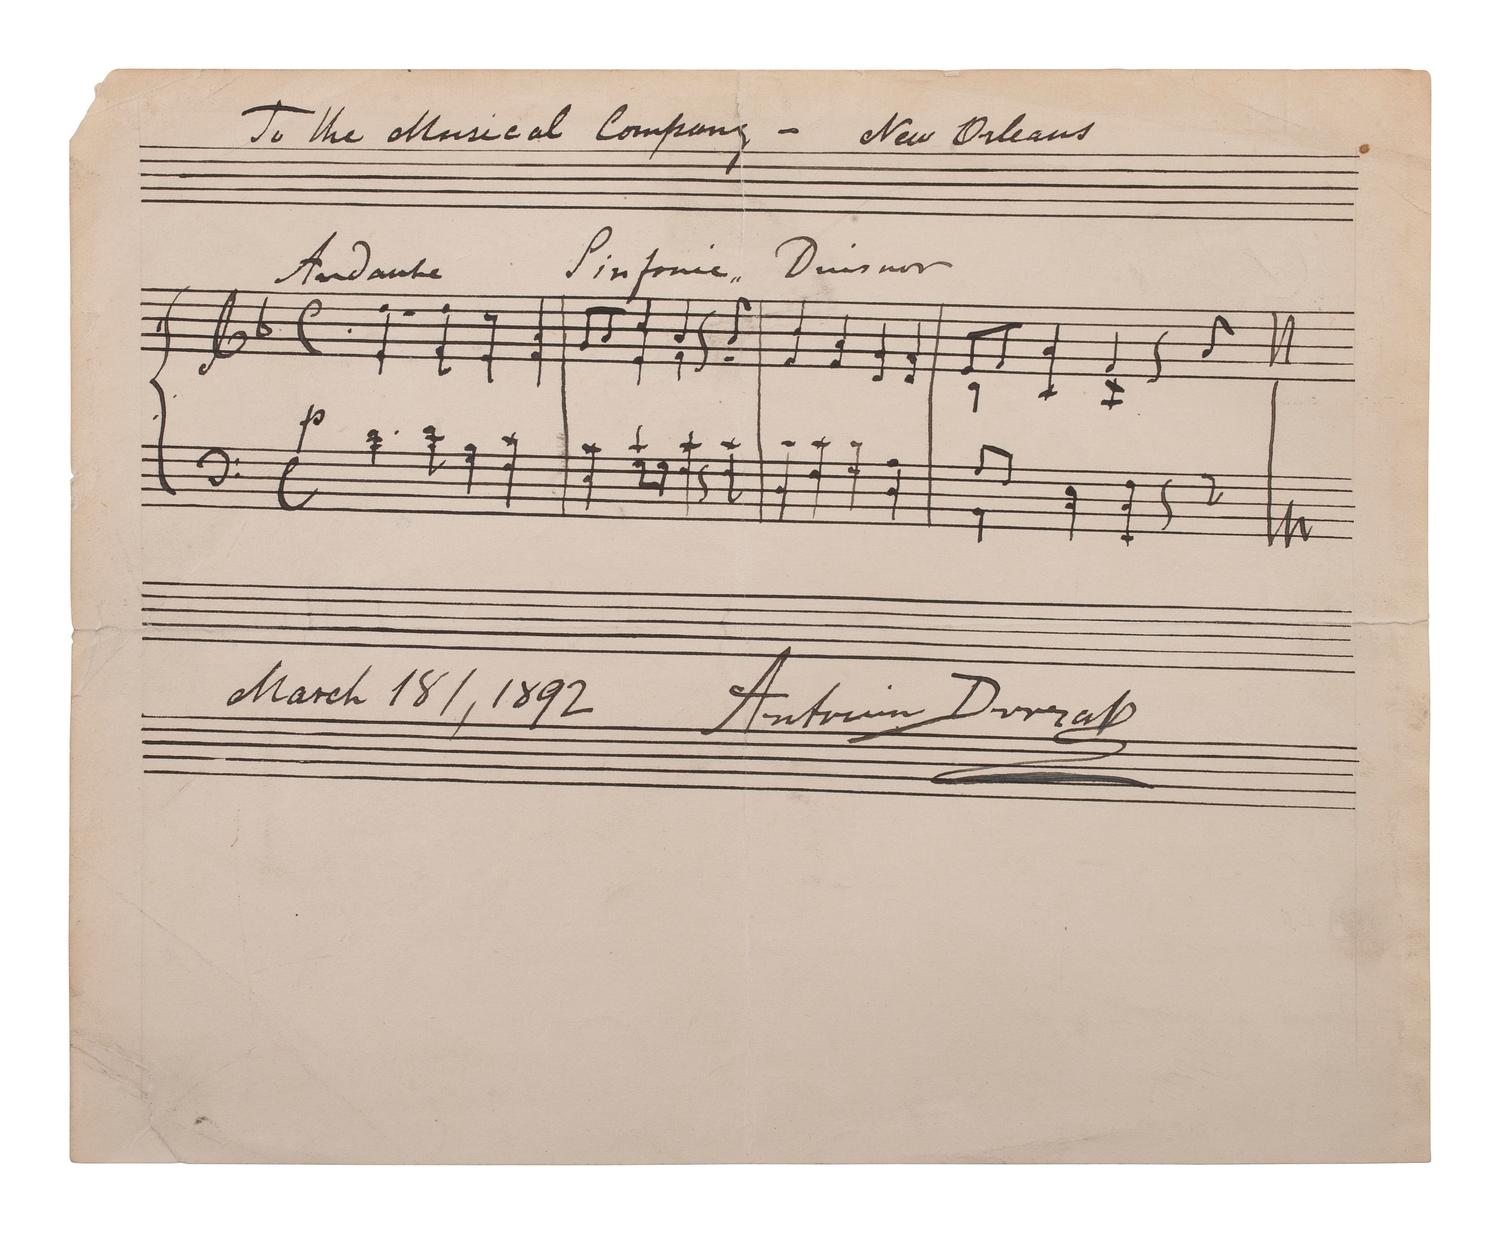 To the Musical Company – New Orleans
Andante Sinfonie„
p
March 18/, 1892
Antonin Dvorzak